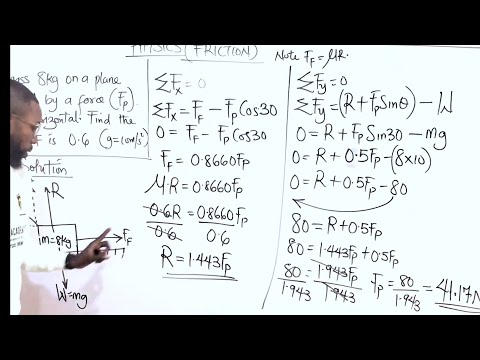 PHYSICS (FRICTION)
Note F_F = μR.
8kg on a plane
by a force (F_P)
Find the
F is 0.6 (g=10m/s²)
R
m=8kg
F_F
W=mg
ΣF_x = 0
ΣF_x = F_F - F_P Cos30
0 = F_F - F_P Cos30
F_F = 0.8660F_P
μR = 0.8660F_P
0.6R = 0.8660F_P
0.6 0.6
R = 1.443F_P
ΣF_y = 0
ΣF_y = (R + F_P Sinθ) - W
0 = R + F_P Sin30 - mg
0 = R + 0.5F_P - (8×10)
0 = R + 0.5F_P - 80
80 = R + 0.5F_P
80 = 1.443F_P + 0.5F_P
80 = 1.943F_P
1.943 1.943
F_P = 80
1.943
= 41.17N